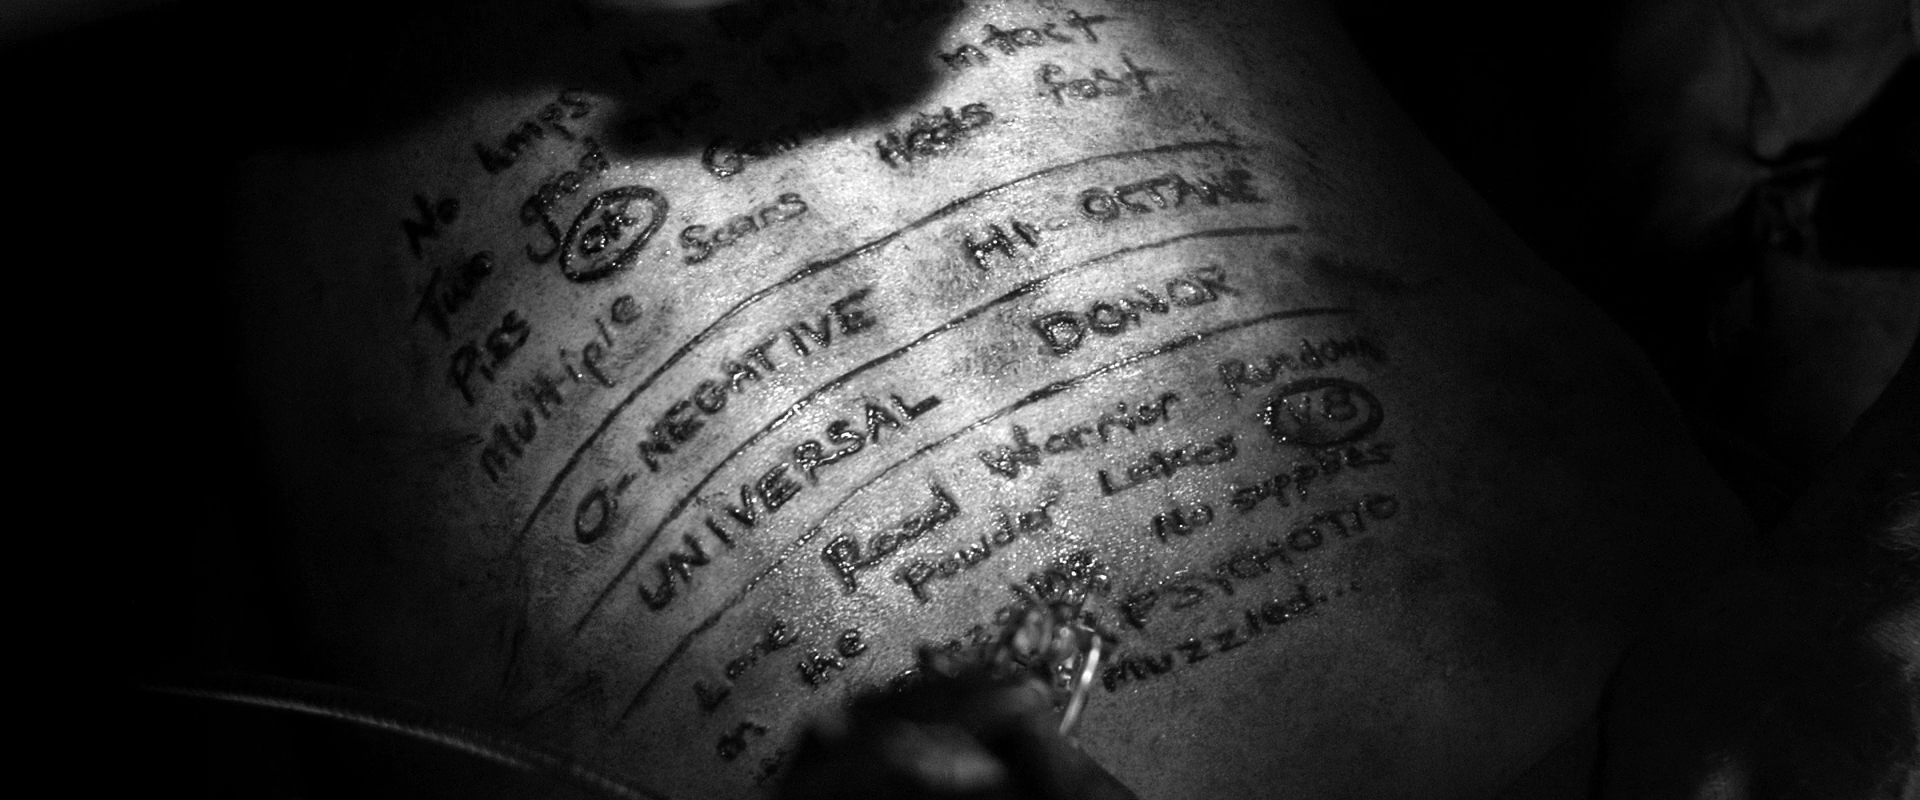 intact
No Lumps
Two good eyes
Heals fast
Piss OK
Multiple Scars
O-NEGATIVE HI-OCTANE
UNIVERSAL DONOR
Lone Road Warrior Rundown
on the Powder Lakes V8
No supplies
PSYCHOTIC
Muzzled...